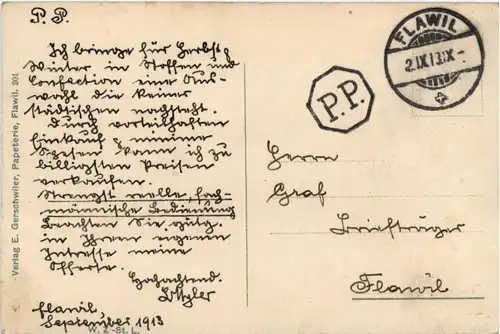 P.P.
Ich bringe für Herbst &
Winter in Stoffen und
Confection eine Aus-
wahl die keiner
städtischen nachsteht.
Durch vorteilhaften
Einkauf & meine
Spesen kann ich zu
billigsten Preisen
verkaufen.
Strengst reelle, fach-
männische Bedienung
Beachten Sie gütg.
in Ihrem eigenen
Interesse meine
Offerte.
Hochachtend.
Flawil
September 1913
W. Z. St. L.
Verlag E. Gerschwiler, Papeterie, Flawil. 201
P.P.
FLAWIL
2.IX.13.IX-
Herrn
Graf
Briefträger
Flawil